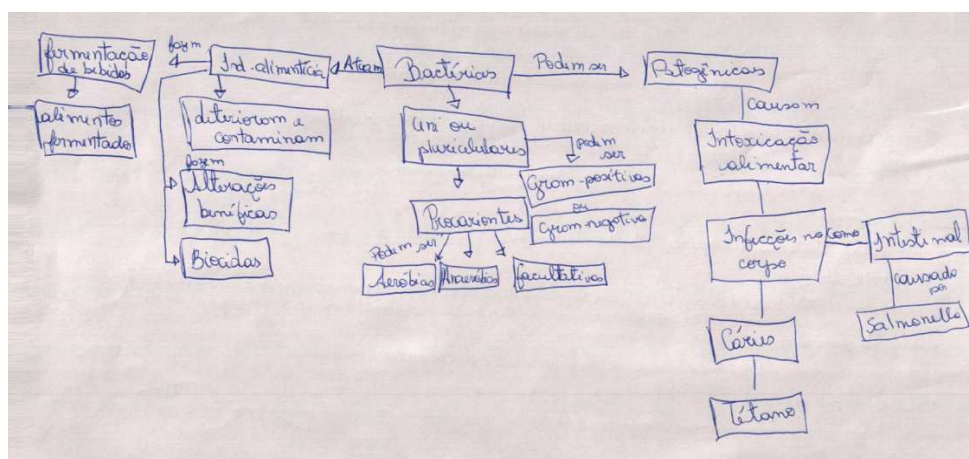 fermentação
de bebidas
fazem
Ind. alimentícia
Atuam
Bactérias
Podem ser
Patogênicas
alimentos
fermentado
deterioram e
contaminam
fazem
Alterações
benéficas
Biocidas
uni ou
pluricelulares
podem
ser
Gram-positiva
ou
Gram-negativa
Procariontes
Podem ser
Aeróbias
Anaeróbias
facultativas
causam
Intoxicação
alimentar
Infecções no
corpo
como
Intestinal
causado
por
Salmonella
Cáries
Tétano